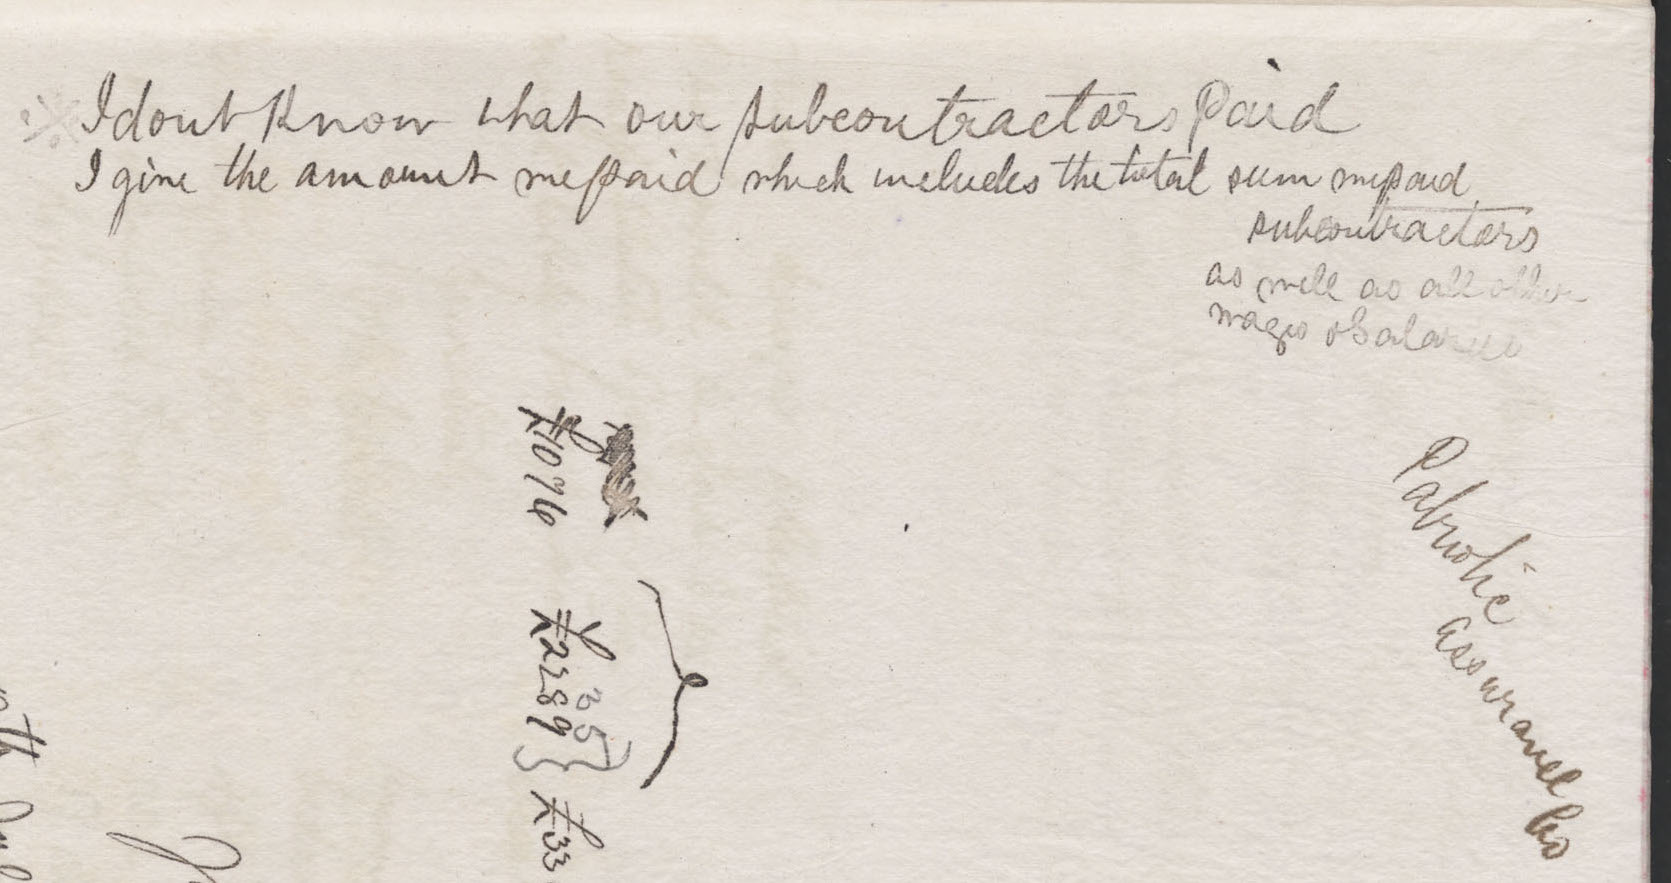 I dont Know what our subcontractors Paid
I give the amount we paid which includes the total sum we paid
subcontractors
as well as all other
wages & Salaries
£1076
£2289
35
£33
Patriotic
assurance Co